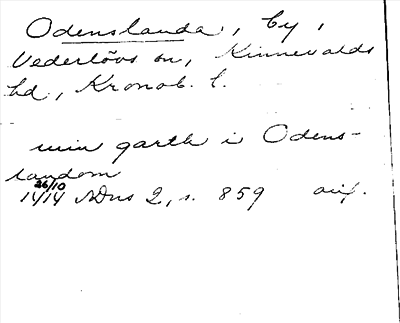 Odenslanda, by,
Vederslövs sn, Kinnevalds
hd, Kronob. l.
min garth i Odens-
landom
26/10
1414 SDns 2, s. 859 avs.